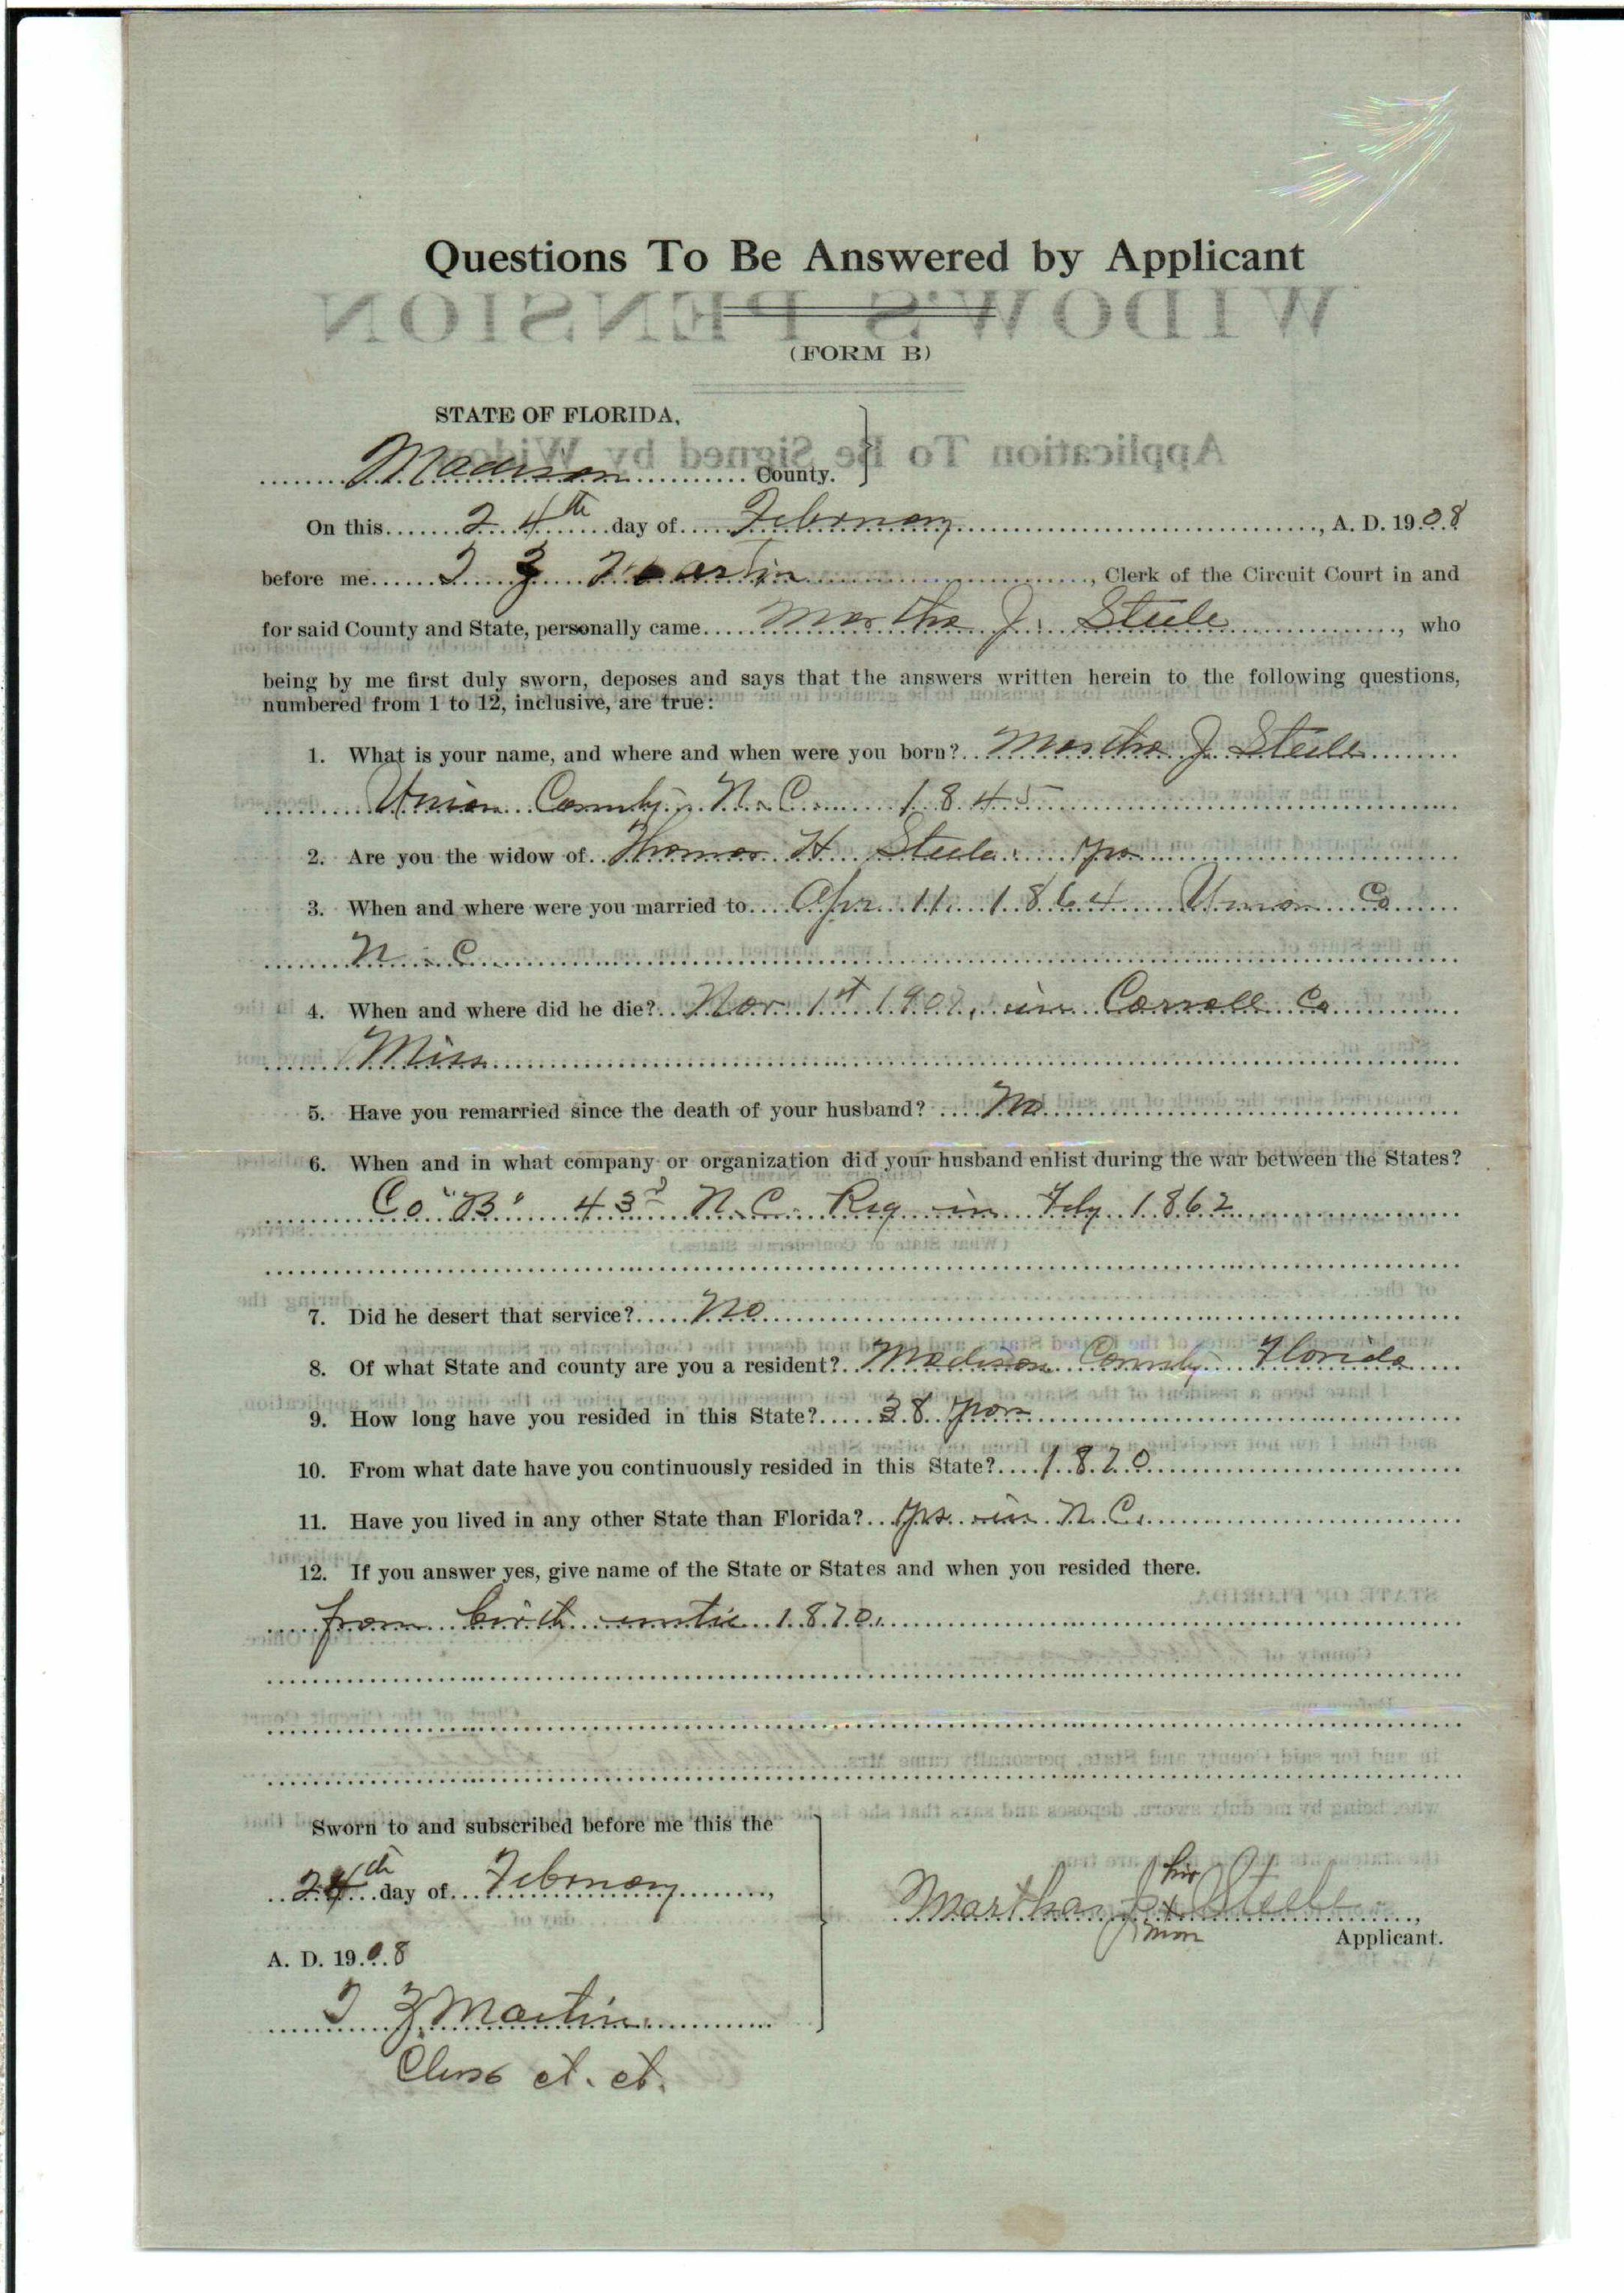 Questions To Be Answered by Applicant
WIDOW'S PENSION
(FORM B)
STATE OF FLORIDA,
Application To Be Signed by Widow
Madison County.
On this 24th day of February, A. D. 1908
before me T Z Martin, Clerk of the Circuit Court in and
for said County and State, personally came Martha J. Steele, who
being by me first duly sworn, deposes and says that the answers written herein to the following questions,
numbered from 1 to 12, inclusive, are true:
1. What is your name, and where and when were you born? Martha J. Steele
Union County, N. C. 1845
2. Are you the widow of Thomas H Steele. yes
3. When and where were you married to Apr 11 1864 Union Co
N. C.
4. When and where did he die? Nov 1st 1907, in Carroll Co
Miss
5. Have you remarried since the death of your husband? No
6. When and in what company or organization did your husband enlist during the war between the States?
Co "B" 43d N. C. Reg in Feby 1862
7. Did he desert that service? No
8. Of what State and county are you a resident? Madison County Florida
9. How long have you resided in this State? 38 years
10. From what date have you continuously resided in this State? 1870
11. Have you lived in any other State than Florida? Yes in N. C.
12. If you answer yes, give name of the State or States and when you resided there.
from birth until 1870.
Sworn to and subscribed before me this the
24th day of February,
A. D. 1908
her
Martha J x Steele
mark
Applicant.
T Z Martin
Clerk ct. ct.